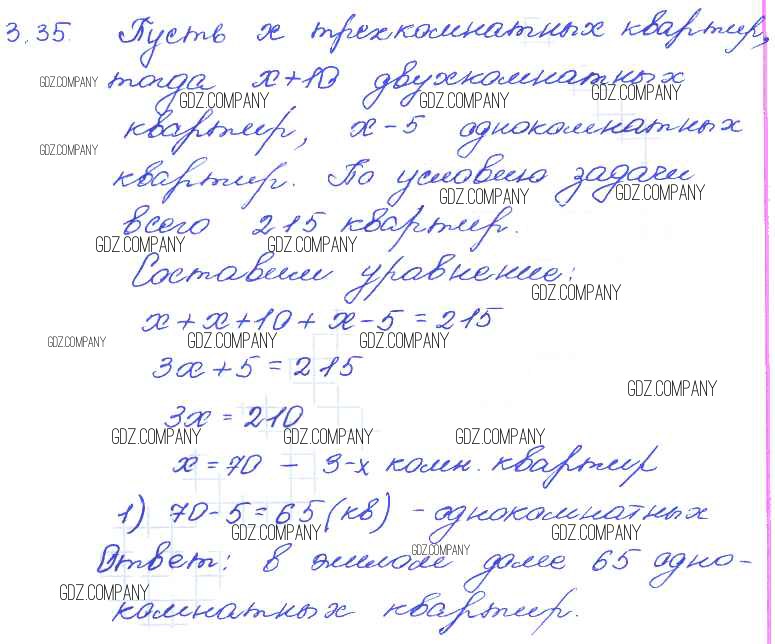 3.35. Пусть x трехкомнатных квартир,
GDZ.COMPANY тогда x+10 двухкомнатных
GDZ.COMPANY GDZ.COMPANY GDZ.COMPANY
квартир, x-5 однокомнатных
GDZ.COMPANY
квартир. По условию задачи
GDZ.COMPANY GDZ.COMPANY
всего 215 квартир.
GDZ.COMPANY GDZ.COMPANY
Составим уравнение:
GDZ.COMPANY
x+x+10+x-5=215
GDZ.COMPANY GDZ.COMPANY GDZ.COMPANY
3x+5=215
GDZ.COMPANY
3x=210
GDZ.COMPANY GDZ.COMPANY GDZ.COMPANY
x=70 - 3-х комн. квартир
1) 70-5=65(кв) - однокомнатных
GDZ.COMPANY GDZ.COMPANY
Ответ: в жилом доме 65 одно-
GDZ.COMPANY
GDZ.COMPANY
комнатных квартир.